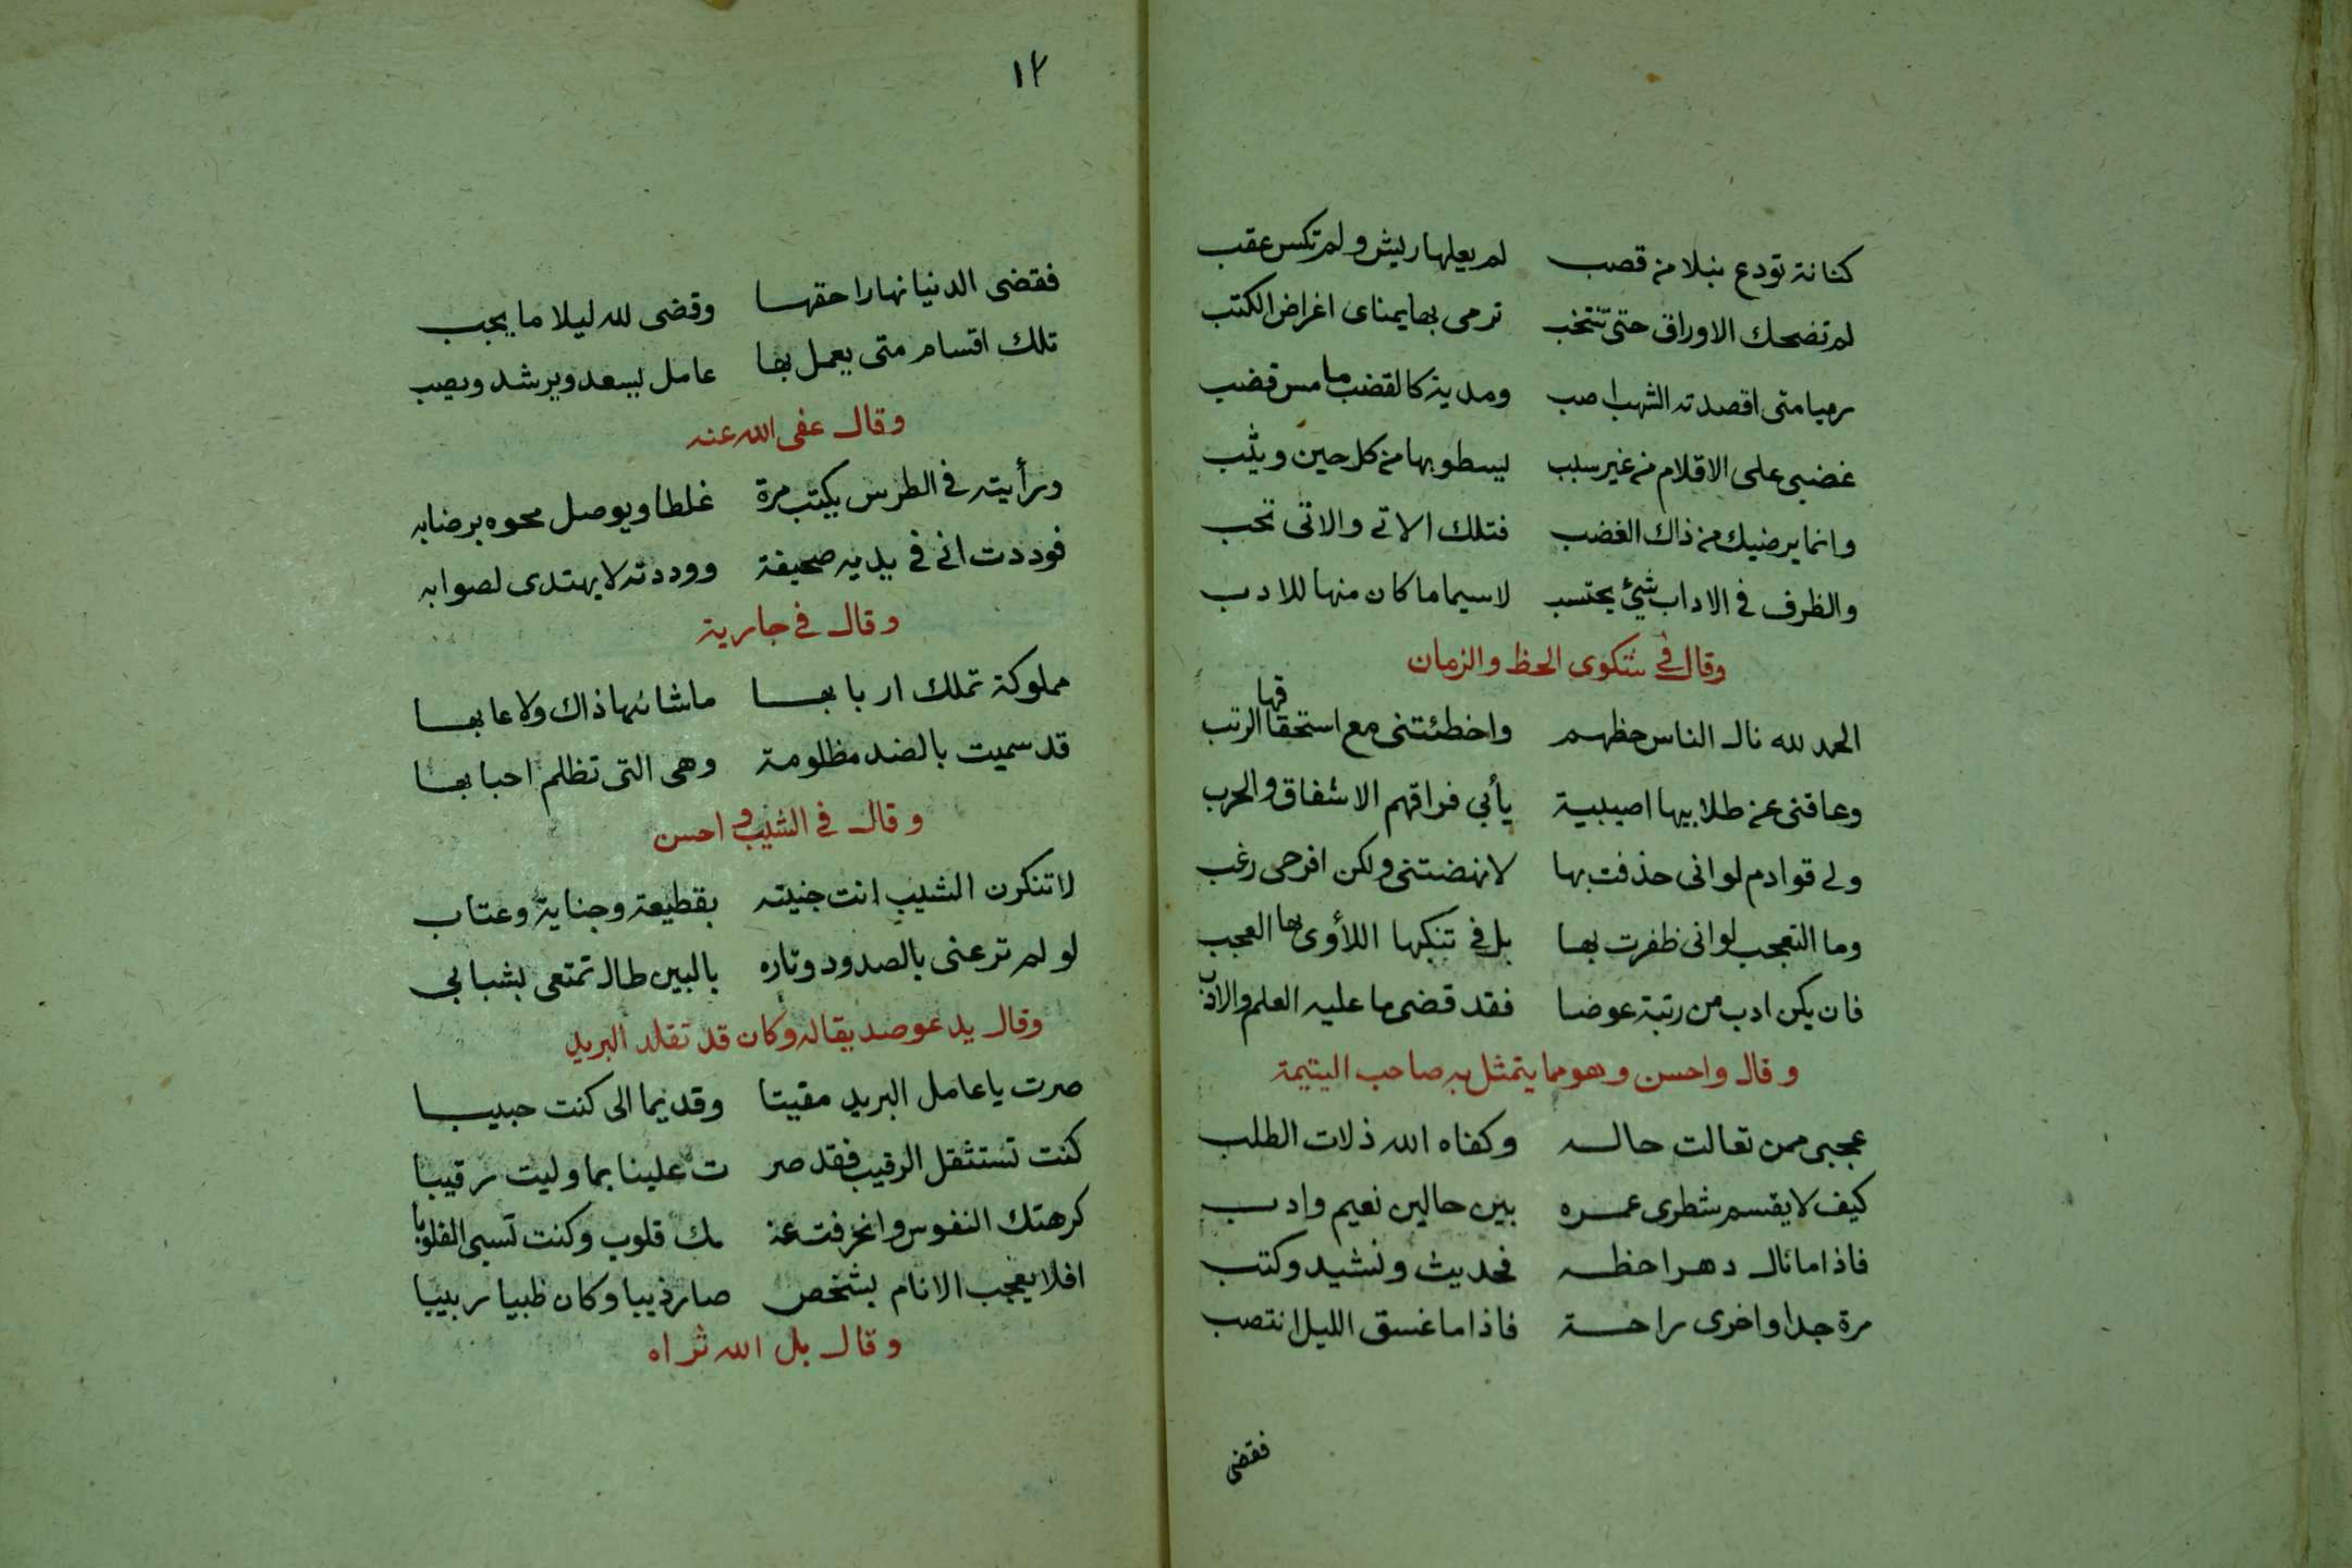 كنانة تودع نبلا من قصب لم يعلها ريش ولم تكس عقب
لم تضحك الاوراق حتى تنتخب ترمى بها يمناى اغراض الكتب
رميا متى اقصدته الشهب اصب ومدية كالقضب ما مس قضب
غضبى على الاقلام من غير سبب ليسطو بها من كل حين ويثب
وانما يرضيك من ذاك الغضب فتلك الاتى والاتى تحب
والظرف في الاداب شئ يحتسب لاسيما ما كان منها للادب
وقال في شكوى الحظ والزمان
الحمد لله نال الناس حظهم واخطئتنى مع استحقاقها الرتب
وعاقنى عن طلابيها اصيبية يأبي فراقهم الاشفاق والحرب
ولى قوادم لو انى حذفت بها لانهضتنى ولكن افرحى زغب
وما التعجب لو انى ظفرت بها بل في تنكبها اللأوى بها العجب
فان يكن ادب من رتبة عوضا فقد قضى ما عليه العلم والادب
وقال واحسن وهو مما يتمثل به صاحب اليتيمة
عجبى ممن تعالت حاله وكفاه الله ذلات الطلب
كيف لا يقسم شطرى عمره بين حالين نعيم وادب
فاذا ما نال دهرا حظه فحديث ونشيد وكتب
مرة جدا واخرى راحة فاذا ما غسق الليل انتصب
فقضى
١٢
فقضى الدنيا نهارا حقها وقضى لله ليلا ما يجب
تلك اقسام متى يعمل بها عامل يسعد ويرشد ويصب
وقال عفى الله عنه
ورأيته في الطرس يكتب مرة غلطا ويوصل محوه برضابه
فوددت انى في يديه صحيفة ووددته لا يهتدى لصوابه
وقال في جارية
مملوكة تملك اربابها ما شانها ذاك ولا عابها
قد سميت بالضد مظلومة وهى التى تظلم احبابها
وقال في الشيب و احسن
لا تنكرن الشيب انت جنيته بقطيعة وجناية وعتاب
لو لم ترعنى بالصدود وتاره بالبين طال تمتعى بشبابي
وقال يدعو صديقا له وكان قد تقلد البريد
صرت يا عامل البريد مقيتا وقديما الى كنت حبيبا
كنت تستثقل الرقيب فقد صر ت علينا بما وليت رقيبا
كرهتك النفوس وانحرفت عنـ ـك قلوب وكنت تسبى القلوبا
افلا يعجب الانام بشخص صار ذيبا وكان ظبيا ربيبا
وقال بل الله ثراه